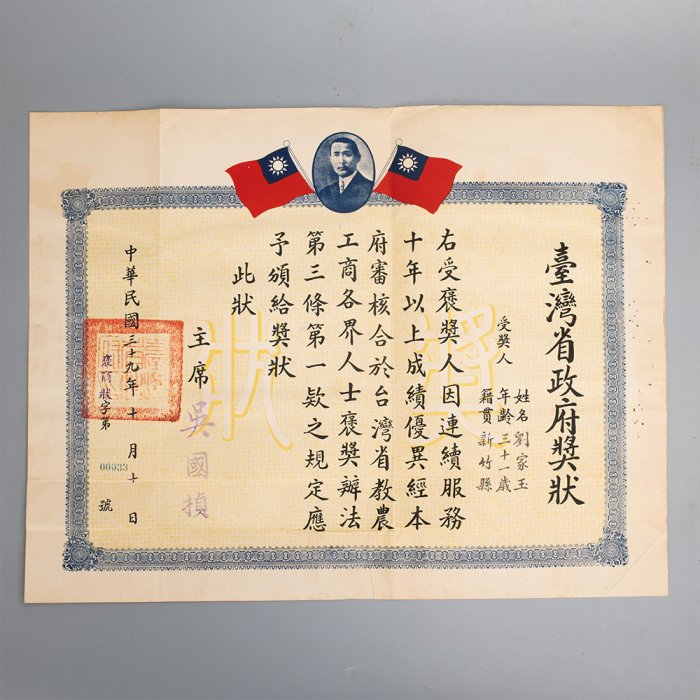 臺灣省政府獎狀
受獎人
姓名劉家玉
年齡三十一歲
籍貫新竹縣
右受褒獎人因連續服務
十年以上成績優異經本
府審核合於台灣省教農
工商各界人士褒獎辦法
第三條第一欵之規定應
予頒給獎狀
此狀
主席吳國楨
中華民國三十九年十月十日
字第00033號
獎狀